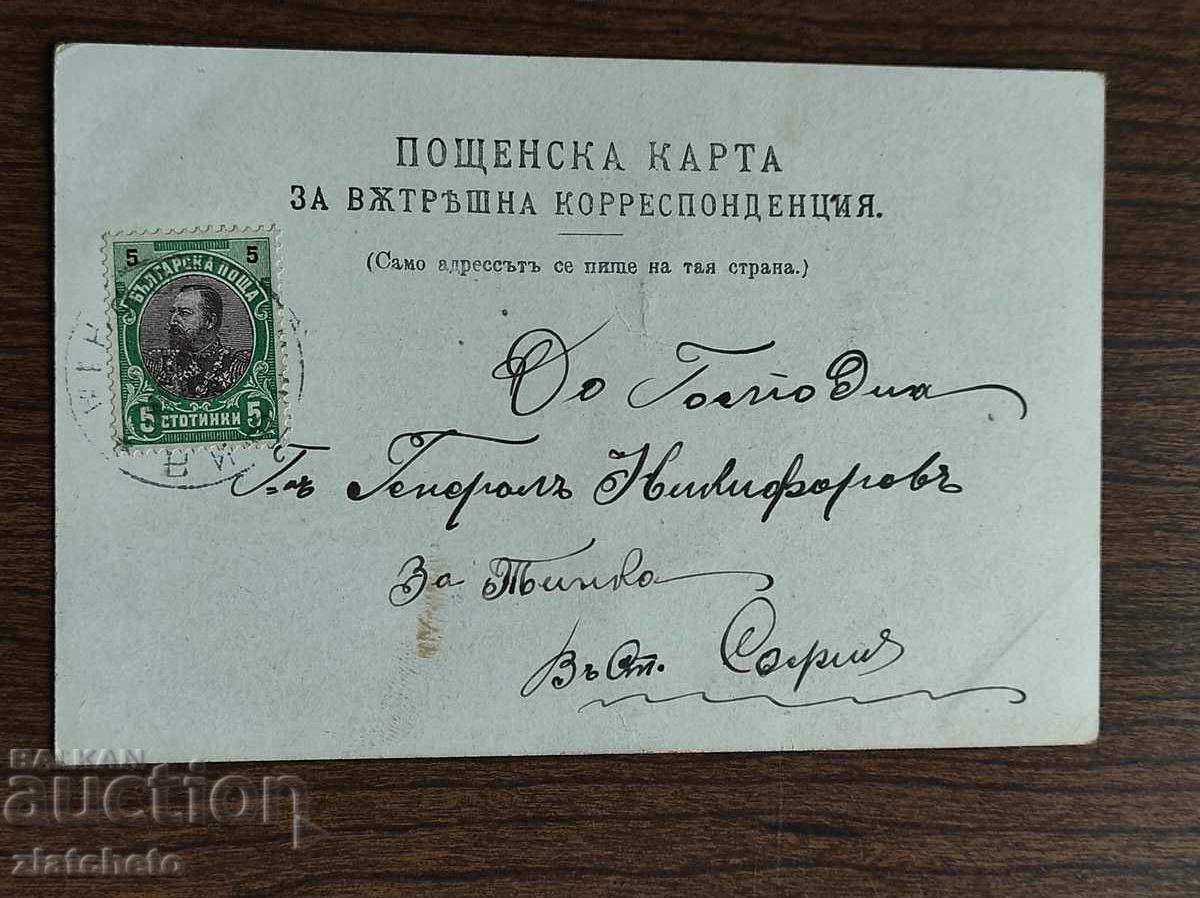 ПОЩЕНСКА КАРТА
ЗА ВѪТРѢШНА КОРРЕСПОНДЕНЦИЯ.
(Само адрессътъ се пише на тая страна.)
5 5
БЪЛГАРСКА ПОЩА
5 СТОТИНКИ 5
До Господина
Г-нъ Генералъ Никифоровъ
За Тинка
Въ Ст. София
BALKAN
auction
zlatcheto